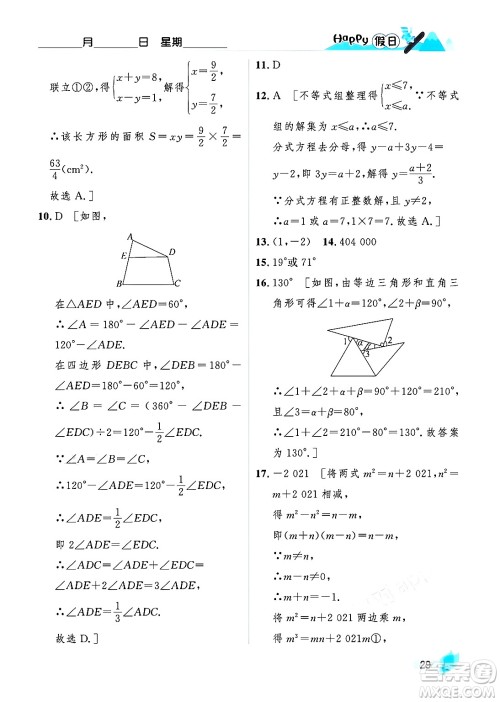 月 日 星期
Happy 假日
联立①②,得{x+y=8, x-y=1, 解得{x=9/2, y=7/2.
∴该长方形的面积 S=xy=9/2×7/2=
63/4(cm²).
故选 A.]
10. D [如图,
A
E D
B C
在△AED 中,∠AED=60°,
∴∠A=180°-∠AED-∠ADE=
120°-∠ADE.
在四边形 DEBC 中,∠DEB=180°-
∠AED=180°-60°=120°,
∴∠B=∠C=(360°-∠DEB-
∠EDC)÷2=120°-1/2∠EDC.
∵∠A=∠B=∠C,
∴120°-∠ADE=120°-1/2∠EDC,
∴∠ADE=1/2∠EDC,
即 2∠ADE=∠EDC,
∵∠ADC=∠ADE+∠EDC=
∠ADE+2∠ADE=3∠ADE,
∴∠ADE=1/3∠ADC.
故选 D.]
11. D
12. A [不等式组整理得{x≤7, x≤a.∵不等式
组的解集为 x≤a,∴a≤7.
分式方程去分母,得 y-a+3y-4=
y-2,即 3y-2=a,解得 y=(a+2)/3.
∵分式方程有正整数解,且 y≠2,
∴a=1,a=7,1×7=7.故选 A.]
13. (1,-2) 14. 404 000
15. 19°或 71°
16. 130° [如图,由等边三角形和直角三
角形可得∠1+α=120°,∠2+β=90°,
1 α β 2 3
∴∠1+∠2+α+β=120°+90°=210°,
且∠3=α+β,
∴∠1+∠2+∠3=210°.
∵∠3=80°,
∴∠1+∠2=210°-80°=130°.故答案
为:130°.]
17. -2 021 [将两式 m²=n+2 021,n²=
m+2 021 相减,
得 m²-n²=n-m,
即(m+n)(m-n)=n-m,
∵m≠n,
∴m+n=-1.
将 m²=n+2 021 两边乘 m,
得 m³=mn+2 021m①,
29